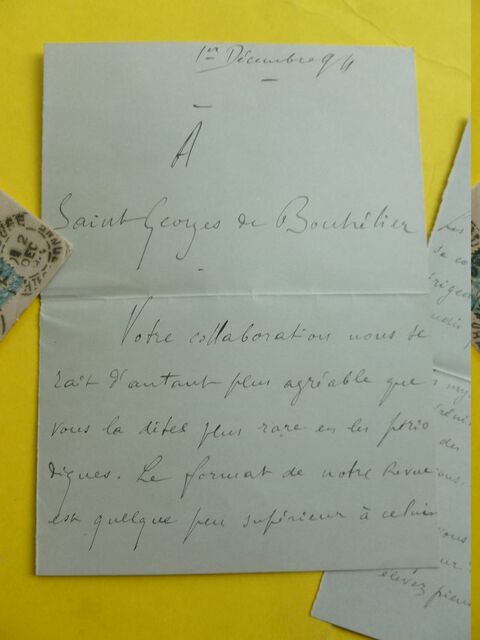 1er Décembre 94
À
Saint-Georges de Bouhélier
Votre collaboration nous se
rait d'autant plus agréable que
vous la dites plus rare en les pério
diques. Le format de notre Revue
est quelque peu supérieur à celui
Les
se co
des
vous
élevez
DEC